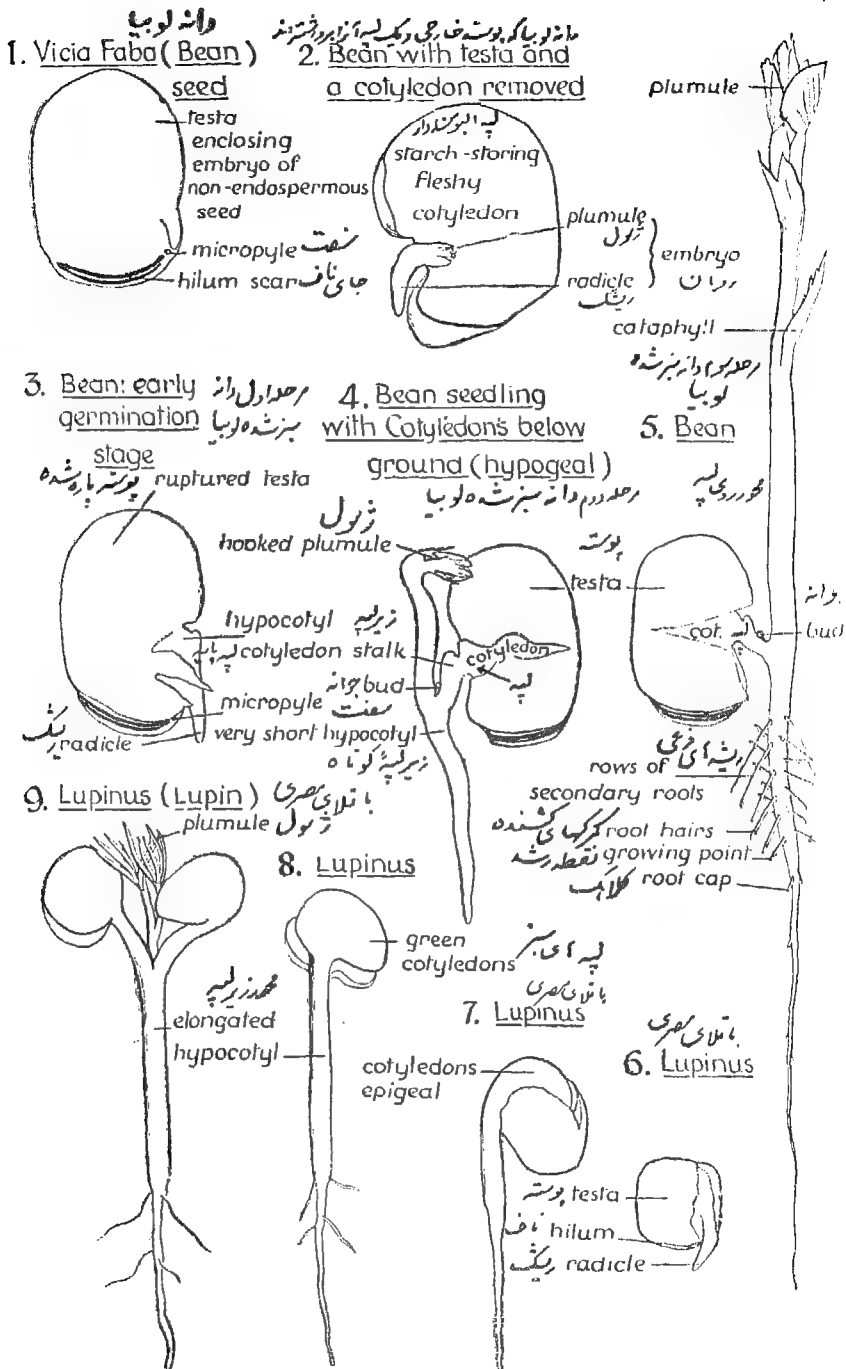 دانه لوبیا
1. Vicia Faba (Bean)
seed
testa
enclosing
embryo of
non-endospermous
seed
micropyle سفت
hilum scar جای ناف
دانه لوبیا که پوسته خارجی و یک لپه آنرا برداشته‌اند
2. Bean with testa and
a cotyledon removed
لپه آلبومن‌دار
starch-storing
fleshy
cotyledon
plumule
ژمول
radicle
ریشک
embryo
رویان
plumule
cataphyll
مرحله سوم دانه سبز شده
لوبیا
5. Bean
محور روی لپه
3. Bean: early
germination
stage
مرحله اول دانه
سبز شده لوبیا
پوسته پاره شده ruptured testa
hypocotyl زیر لپه
لپه پایه cotyledon stalk
micropyle سفت
ریشک radicle
4. Bean seedling
with Cotyledons below
ground (hypogeal)
مرحله دوم دانه سبز شده لوبیا
ژمول
hooked plumule
پوسته
testa
cotyledon
لپه
جوانه bud
very short hypocotyl
زیر لپهٔ کوتاه
cot. لپه
bud
ریشه‌های فرعی
rows of
secondary roots
root hairs
نقطه رشد growing point
کلاهک root cap
9. Lupinus (Lupin) باقلای مصری
plumule ژمول
محور زیر لپه
elongated
hypocotyl
8. Lupinus
green
cotyledons
لپه های سبز
باقلای مصری
7. Lupinus
cotyledons
epigeal
باقلای مصری
6. Lupinus
پوسته testa
ناف hilum
ریشک radicle